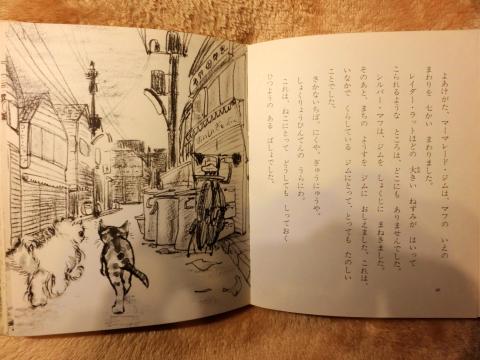 よあけがた、マーマレード・ジムは、マフの いえの
まわりを 七かい まわりました。
レイダー・ラットほどの 大きい ねずみが はいって
こられるような ところは、どこにも ありませんでした。
シルバー・マフは、ジムを しょくじに まねきました。
そのあと、まちの ようすを ジムに おしえました。これは、
いなかで くらしている ジムにとって、とっても たのしい
ことでした。
さかないちば、にくや、ぎゅうにゅうや、
しょくりょうひんてんの うらにわ。
これは、ねこにとって どうしても しっておく
ひつようの ある ばしょでした。